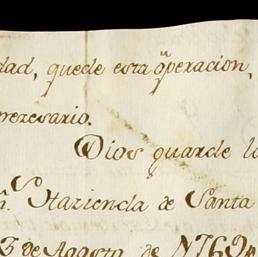 dad, quede esta operacion,
nezesario.
Dios guarde
Hazienda de Santa
3 de Agosto de